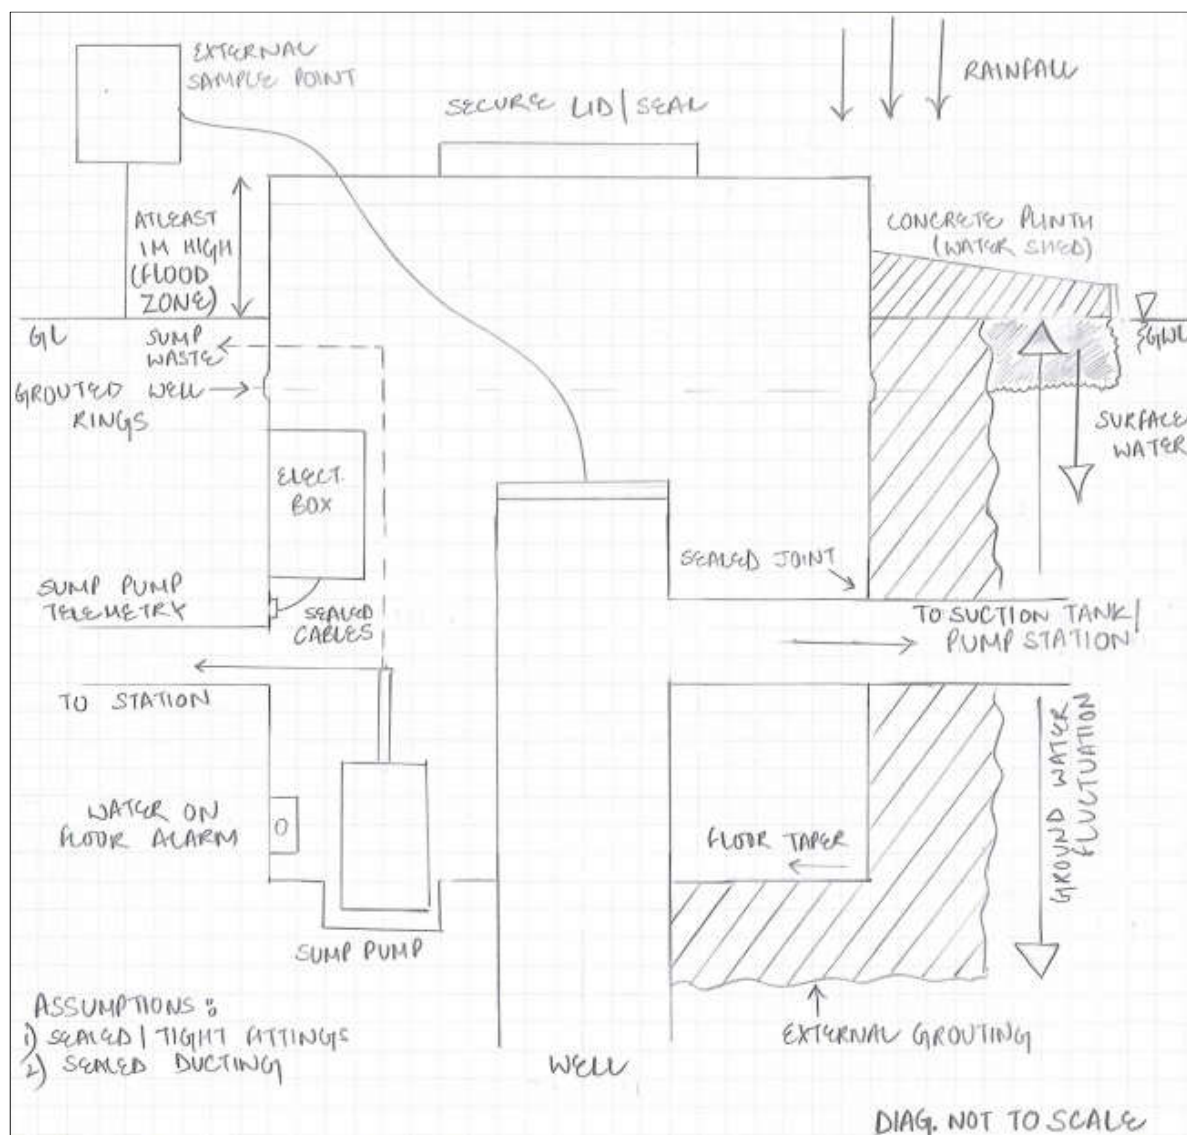 EXTERNAL
SAMPLE POINT
SECURE LID/SEAL
RAINFALL
ATLEAST
1M HIGH
(FLOOD
ZONE)
CONCRETE PLINTH
(WATER SHED)
GL
SUMP
WASTE
GWL
GROUTED WELL
RINGS
SURFACE
WATER
ELECT.
BOX
SEALED JOINT
SUMP PUMP
TELEMETRY
SEALED
CABLES
TO SUCTION TANK/
PUMP STATION
TO STATION
GROUND WATER
FLUCTUATION
WATER ON
FLOOR ALARM
O
FLOOR TAPER
SUMP PUMP
ASSUMPTIONS:
1) SEALED/TIGHT FITTINGS
2) SEALED DUCTING
EXTERNAL GROUTING
WELL
DIAG. NOT TO SCALE